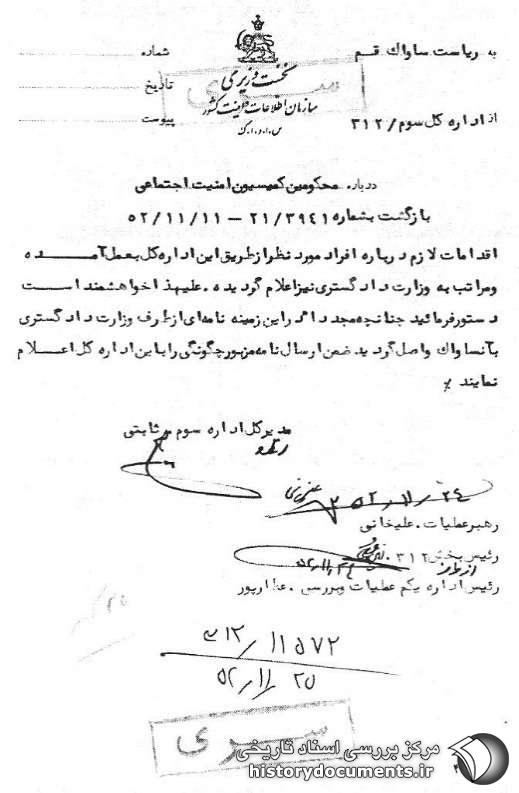 به ریاست ساواک قم
شماره
نخست وزیری
سری
تاریخ
سازمان اطلاعات و امنیت کشور
س.ا.و.ا.ک
از اداره کل سوم / ۳۱۲
پیوست
درباره محکومین کمیسیون امنیت اجتماعی
بازگشت بشماره ۲۱/۳۹۴۱ - ۵۲/۱۱/۱۱
اقدامات لازم درباره افراد مورد نظر از طریق این اداره کل بعمل آمده
و مراتب به وزارت دادگستری نیز اعلام گردیده . علیهذا خواهشمند است
دستور فرمائید چنانچه مجددا در این زمینه نامه ای از طرف وزارت دادگستری
بآنساواک واصل گردید ضمن ارسال نامه مزبور چگونگی را باین اداره کل اعلام
نمایند
مدیر کل اداره سوم . ثابتی
۵۲/۱۱/۲۴
رهبر عملیات . علیخانی
رئیس بخش ۳۱۲
از طرف
رئیس اداره یکم عملیات و بررسی . عطارپور
۳۱۲/۱۱۵۷۲
۵۲/۱۱/۲۵
سری
مرکز بررسی اسناد تاریخی
historydocuments.ir